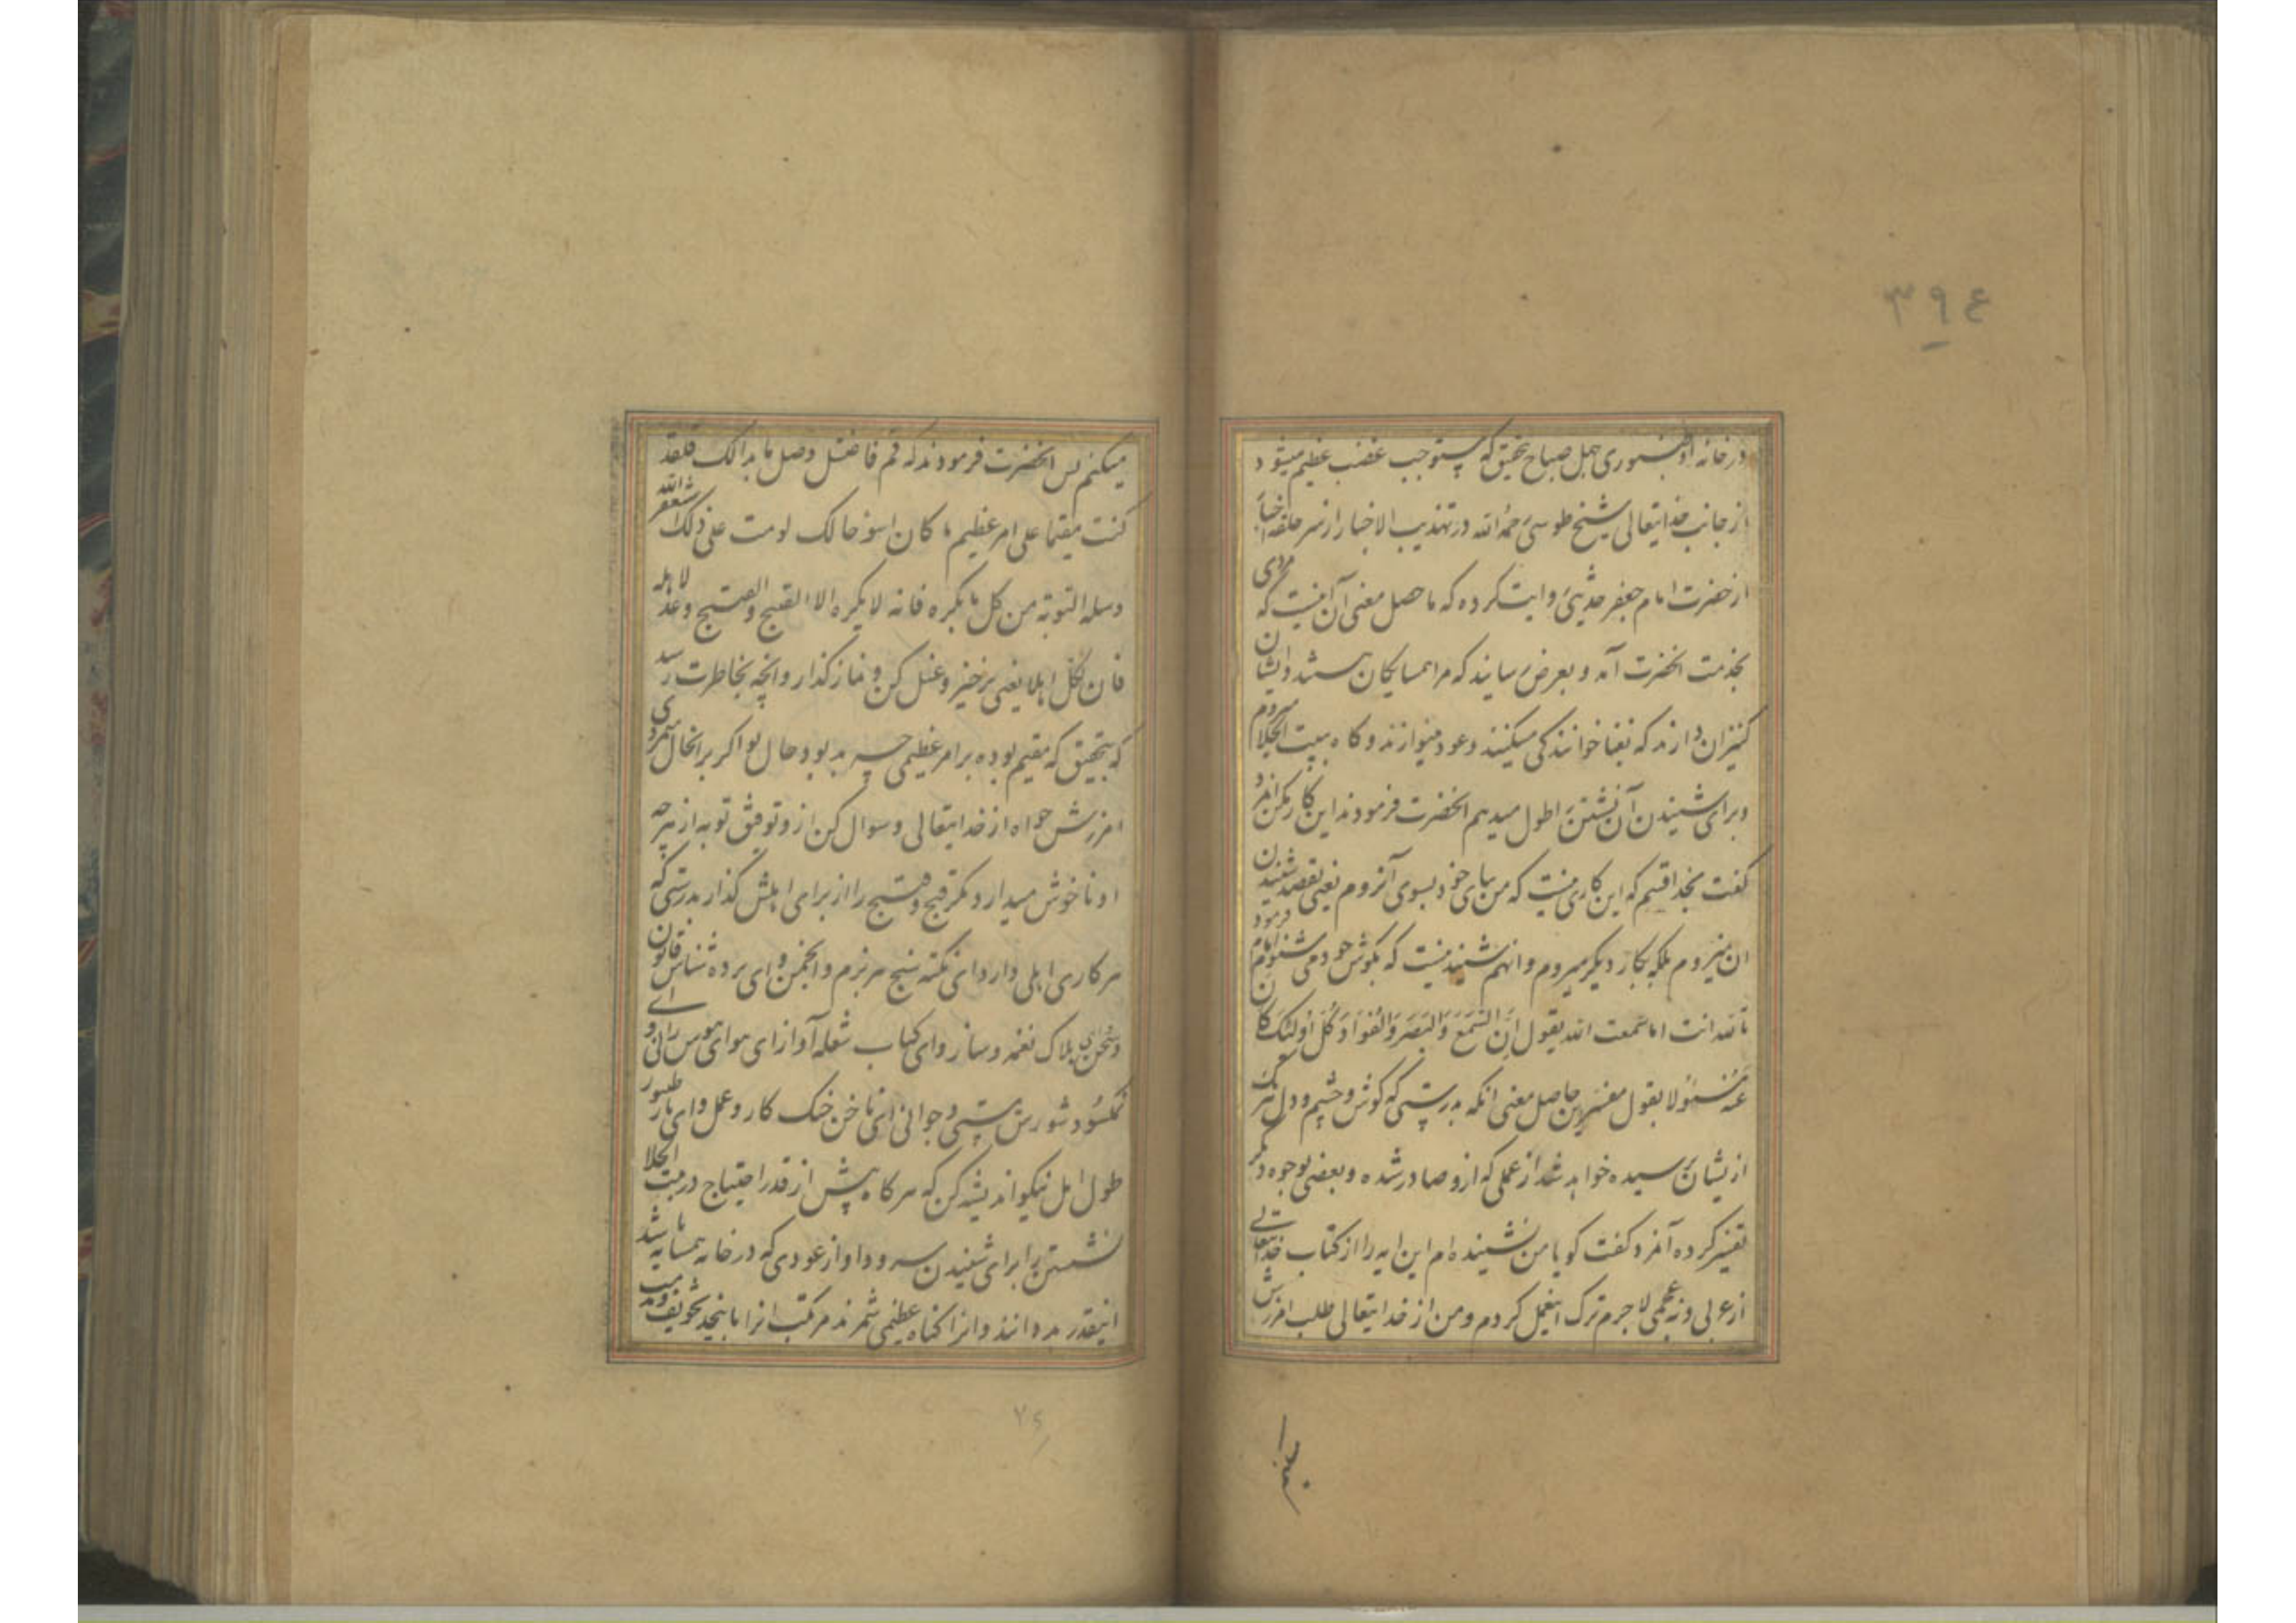 ۳۹٤
در خانه او طنبوری چهل صباح بتحقیق که مستوجب غضب عظیم میشود
از جانب خدایتعالی شیخ طوسی رحمه الله در تهذیب الاخبار از سر حلقه اخیار
از حضرت امام جعفر حدیثی روایت کرده که ماحصل معنی آن اینست که مردی
بخدمت انحضرت آمد و بعرض رسانید که مرا همسایکان هستند و ایشان
کنیزان دارند که بغنا خوانندکی میکنند و عود مینوازند و کاه ببیت الخلا میروم
و برای شنیدن آن نشستن را طول میدهم انحضرت فرمودند این کار مکن انمرد
کفت بخدا قسم که این کاری نیست که من بپای خود بسوی آن روم یعنی بقصد شنیدن
ان نمیروم بلکه بکار دیکر میروم و انهم شنیدنیست که بکوش خود می شنوم امام فرمود
تالله انت اما سمعت الله یقول اِنَّ السَّمْعَ وَالْبَصَرَ وَالْفُؤَادَ کُلُّ اُولئِکَ کَانَ
عَنْهُ مَسْئُولا بقول مفسرین حاصل معنی انکه بدرستی که کوش و چشم و دل هر یک
ازیشان پرسیده خواهد شد از عملی که ازو صادر شده و بعضی بوجوه دیکر
تفسیر کرده آنمرد کفت کویا من نشنیده ام این ایه را از کتاب خدایتعالی
از عربی و نه عجمی لاجرم ترک اینعمل کردم و من از خدایتعالی طلب امرزش
میکنم پس انحضرت فرمودند که قم فاغتسل و صل ما بدا لک فلقد
کنت مقیما علی امر عظیم ما کان اسوء حالک لو مت علی ذلک استغفر الله
و سله التوبة من کل ما یکره فانه لا یکره الا القبیح والقبیح دعه لاهله
فان لکل اهلا یعنی برخیز و غسل کن و نماز کذار و انچه بخاطرت رسید
که بتحقیق که مقیم بوده بر امر عظیمی چه بد بود حال تو اکر برانحال میمردی
امرزش خواه از خدایتعالی و سوال کن ازو توفیق توبه از هر چه
او ناخوش میدارد مکر قبیح و قبیح را از برای اهلش کذار بدرستی که
هر کاری اهلی دارد ای نکته سنج هر بزم و انجمن و ای پرده شناس قانون
هلاک نغمه و ساز و ای کباب شعله آواز ای هوای هوس رانی و
شورش مستی و جوانی ای ناخن خشک کار و عمل و ای تار طنبور
طول امل نیکو اندیشه کن که هر کاه بیش از قدر احتیاج در بیت الخلا
نشستن را برای شنیدن سرود و اواز عودی که در خانه همسایه باشد
اینقدر بد دانند و انرا کناه عظیمی شمرند مرتکب انرا باینحد تخویف